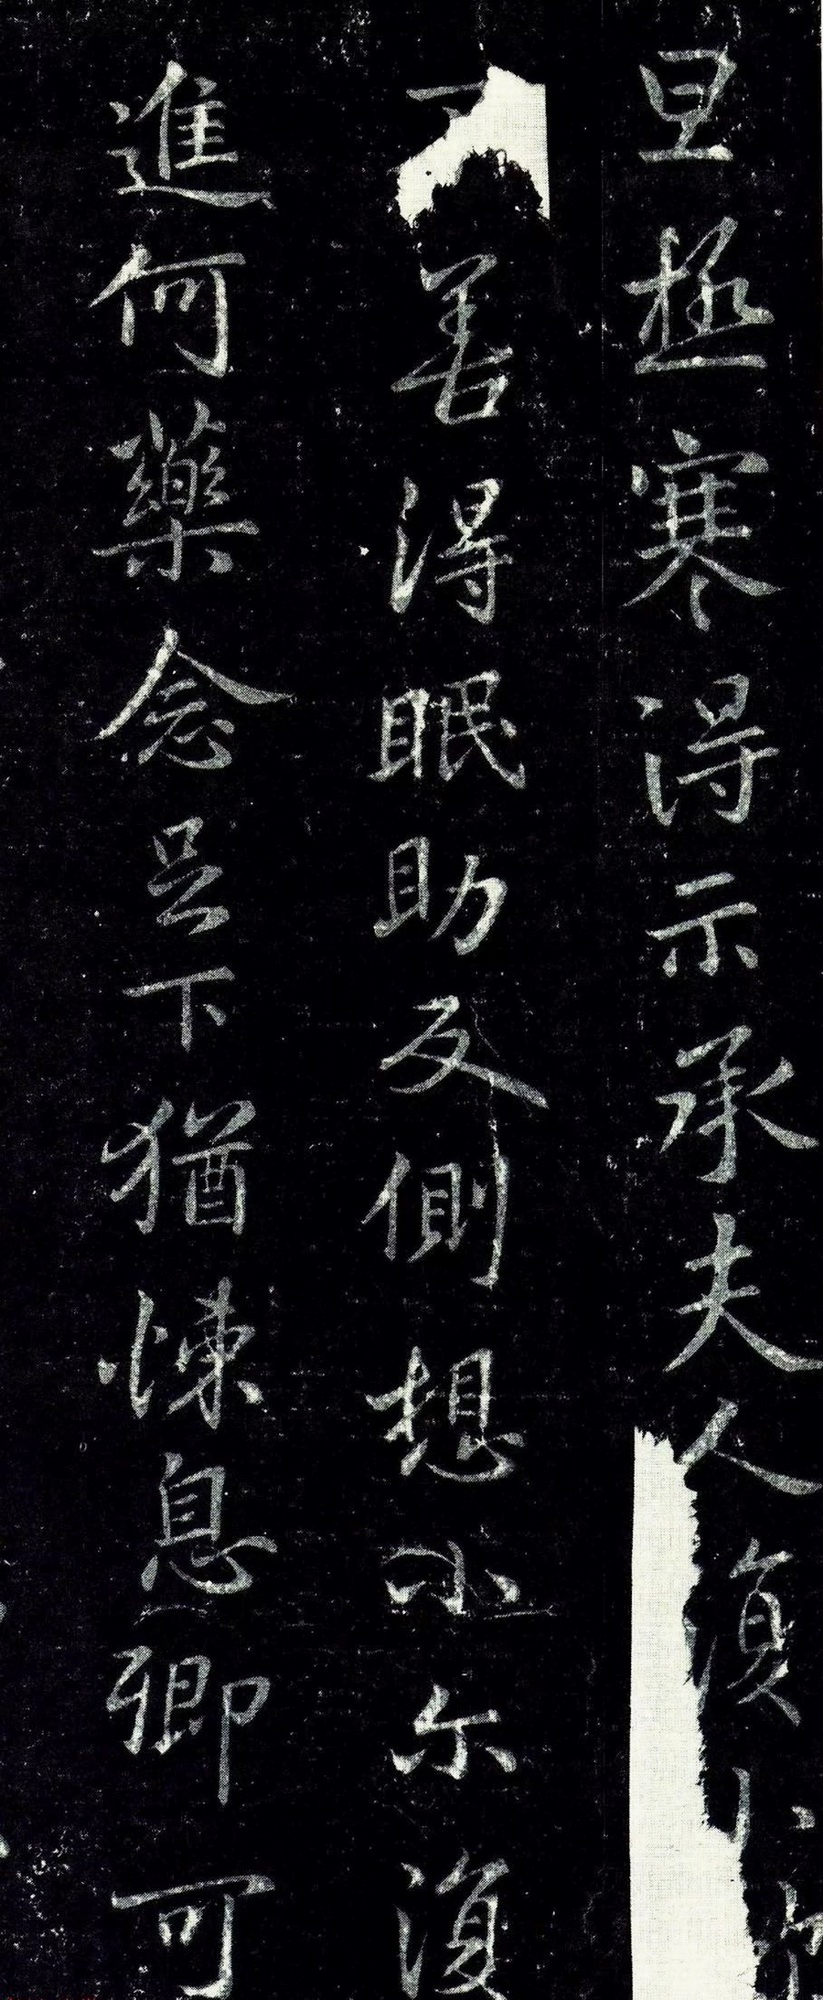 旦極寒得示承夫人復小
善得眠助反側想小尔復
進何藥念足下猶悚息卿可